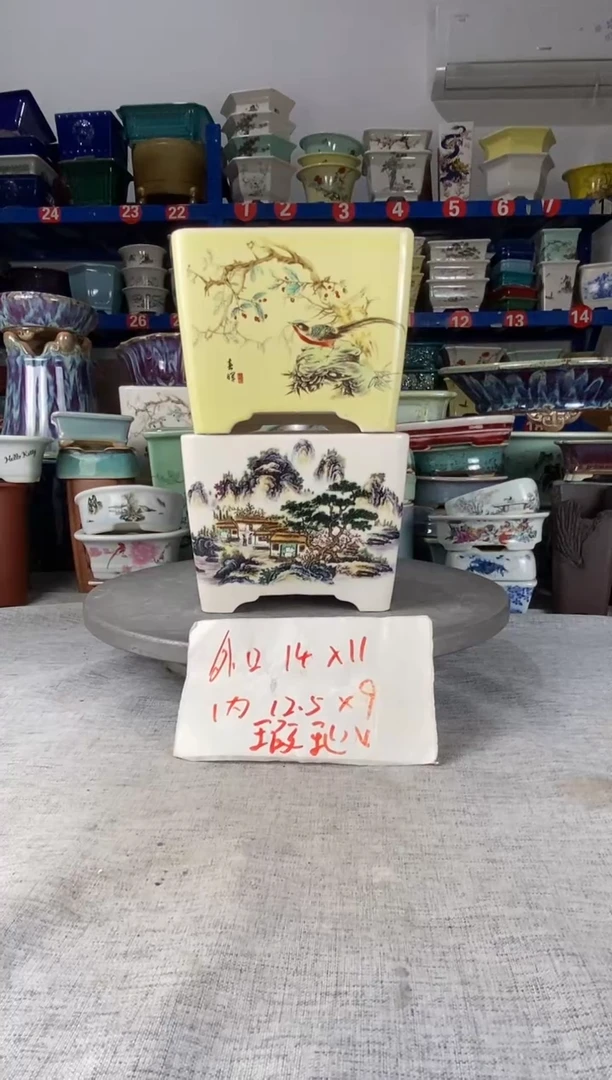 24
23
22
1
2
3
4
5
6
7
26
12
13
14
Hello Kitty
外口 14 x 11
内 12.5 x 9